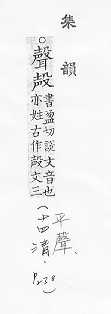 集韻
○聲殸書盈切說文音也
亦姓古作殸文三
(十四清.
平聲.
P.238